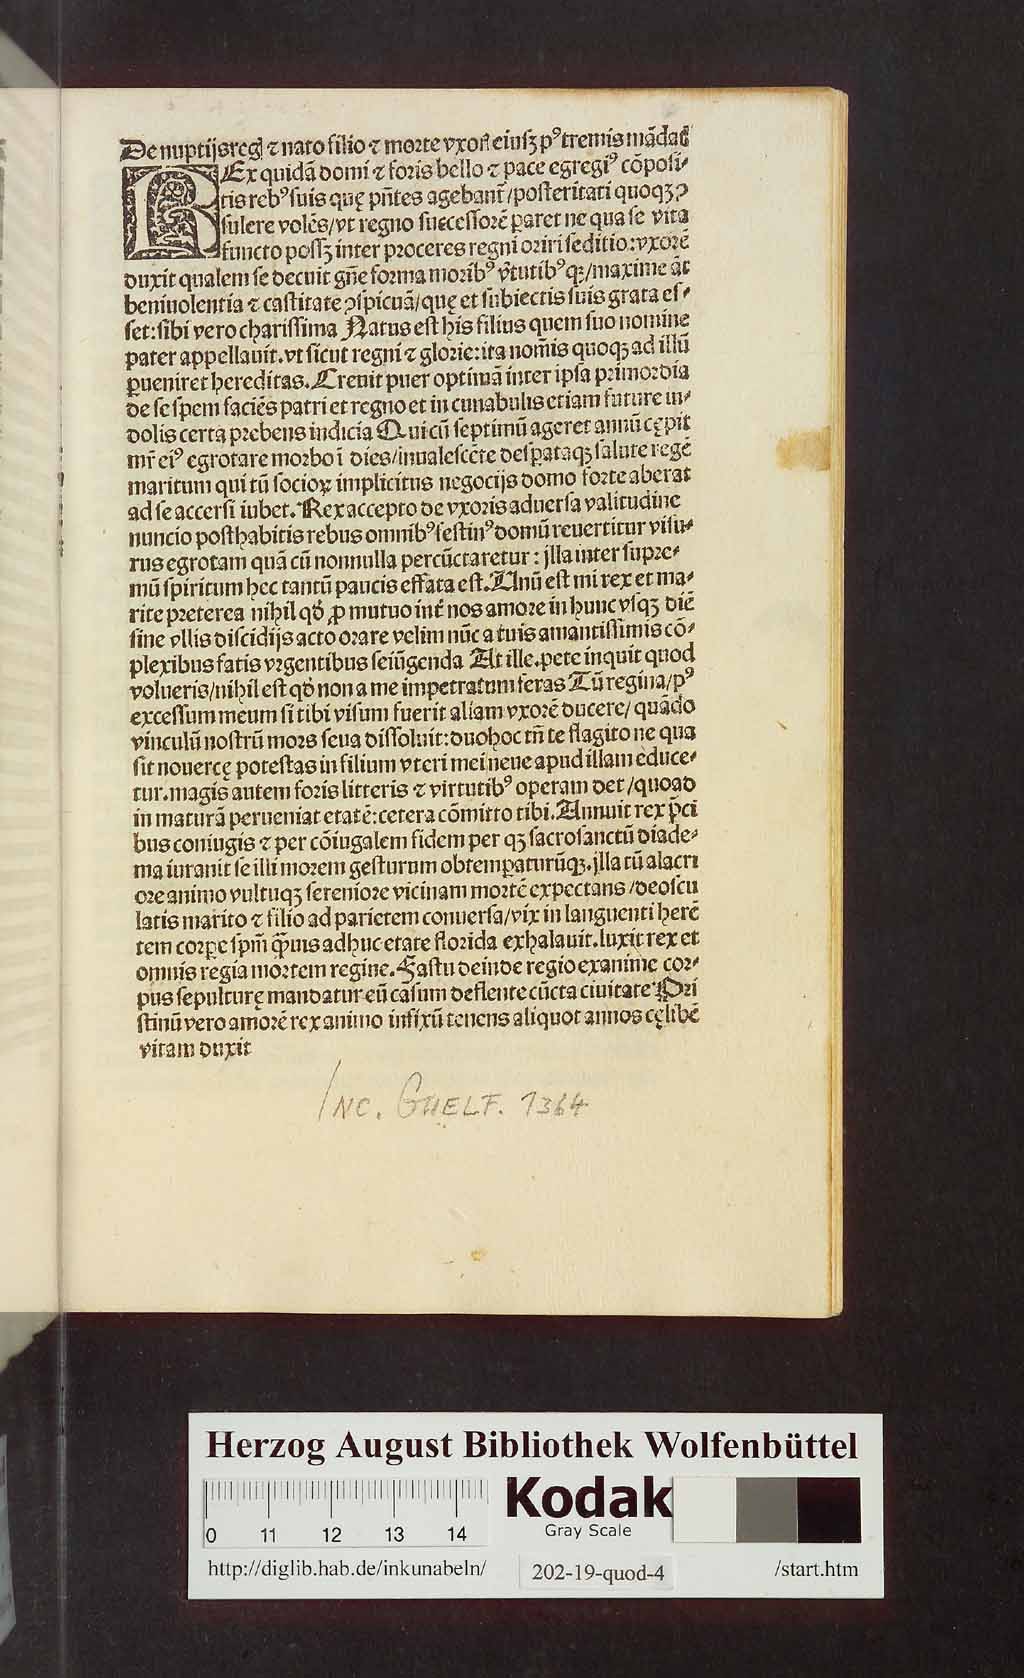 De nuptijs regꝭ ⁊ nato filio ⁊ morte vxorꝭ eiusꝫ pꝰtremis mādaꝭ
REx quidā domi ⁊ foris bello ⁊ pace egregiꝰ cōposi⸗
tis rebꝰ suis quę pn̄tes agebant̄/posteritati quoqꝫ ꝯ
sulere volēs/vt regno successorē paret ne qua se vita
functo possꝫ inter proceres regni oriri seditio:vxorē
duxit qualem se decuit gn̄e forma moribꝰ v̄tutibꝰqꝫ/maxime āt
beniuolentia ⁊ castitate ꝯspicuā/quę et subiectis suis grata es⸗
set:sibi vero charissima Natus est his filius quem suo nomine
pater appellauit.vt sicut regni ⁊ glorie:ita nom̄is quoqꝫ ad illū
ꝑueniret hereditas.Creuit puer optimā inter ipsa primordia
de se spem faciēs patri et regno et in cunabulis etiam future in⸗
dolis certa prebens indicia Qui cū septimū ageret annū cępit
mr̄ eiꝰ egrotare morbo ī dies/inualescēte desꝑataqꝫ salute regē
maritum qui tū socioꝝ implicitus negocijs domo forte aberat
ad se accersi iubet.Rex accepto de vxoris aduersa valitudine
nuncio posthabitis rebus omnibꝰ festinꝰ domū reuertitur visu⸗
rus egrotam quā cū nonnulla percūctaretur:jlla inter supre⸗
mū spiritum hec tantū paucis effata est.Unū est mi rex et ma⸗
rite preterea nihil qđ ꝓ mutuo int̄ nos amore in hunc vsqꝫ diē
sine vllis discidijs acto orare velim nūc a tuis amantissimis cō⸗
plexibus fatis vrgentibus seiūgenda At ille.pete inquit quod
volueris/nihil est qđ non a me impetratum feras Tū regina/pꝰ
excessum meum si tibi visum fuerit aliam vxorē ducere/quādo
vinculū nostrū mors seua dissoluit:duo hoc tn̄ te flagito ne qua
sit nouercę potestas in filium vteri mei neue apud illam educe⸗
tur.magis autem foris litteris ⁊ virtutibꝰ operam det/quoad
in maturā perueniat etatē:cetera cōmitto tibi.Annuit rex p̄ci
bus coniugis ⁊ per cōiugalem fidem per qꝫ sacrosanctū diade⸗
ma iurauit se illi morem gesturum obtemꝑaturūqꝫ.jlla tū alacri
ore animo vultuqꝫ sereniore vicinam mortē expectans/deoscu
latis marito ⁊ filio ad parietem conuersa/vix in languenti herē
tem corꝑe sp̄m q̄̄uis adhuc etate florida exhalauit.luxit rex et
omnis regia mortem regine.Fastu deinde regio exanime cor⸗
pus sepulturę mandatur eū casum deflente cūcta ciuitate Pri
stinū vero amorē rex animo infixū tenens aliquot annos cęlibē
vitam duxit
Inc. Guelf. 1364
Herzog August Bibliothek Wolfenbüttel
0 11 12 13 14
Kodak
Gray Scale
http://diglib.hab.de/inkunabeln/ 202-19-quod-4 /start.htm